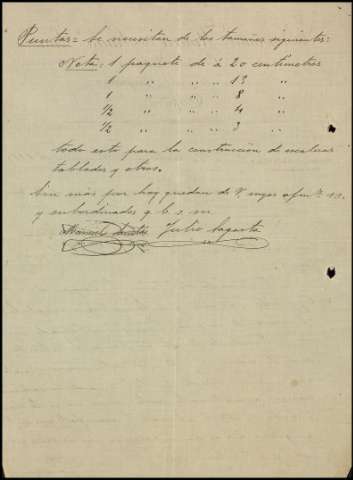 Puntas = Se necesitan de los tamaños siguientes:
Nota: 1 paquete de á 20 centímetros
1 " " " 13 "
1 " " " 8 "
1/2 " " " 4 "
1/2 " " " 3 "
todo esto para la construcción de escaleras
tablados y otros.
Sin más por hoy quedan de V. suyos afmos. s.s.
y subordinados q. b. s. m.
Manuel Julio Sagasta